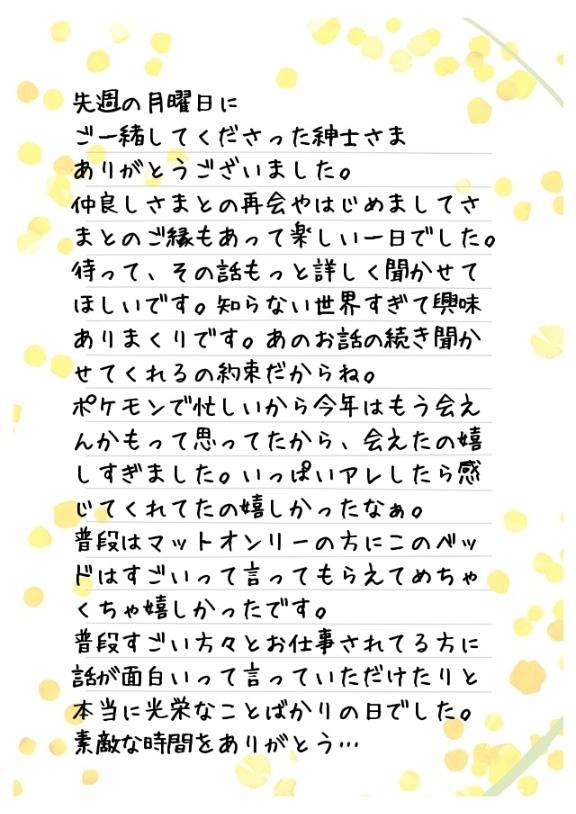 先週の月曜日に
ご一緒してくださった紳士さま
ありがとうございました。
仲良しさまとの再会やはじめましてさ
まとのご縁もあって楽しい一日でした。
待って、その話もっと詳しく聞かせて
ほしいです。知らない世界すぎて興味
ありまくりです。あのお話の続き聞か
せてくれるの約束だからね。
ポケモンで忙しいから今年はもう会え
んかもって思ってたから、会えたの嬉
しすぎました。いっぱいアレしたら感
じてくれてたの嬉しかったなぁ。
普段はマットオンリーの方にこのベッ
ドはすごいって言ってもらえてめちゃ
くちゃ嬉しかったです。
普段すごい方々とお仕事されてる方に
話が面白いって言っていただけたりと
本当に光栄なことばかりの日でした。
素敵な時間をありがとう…